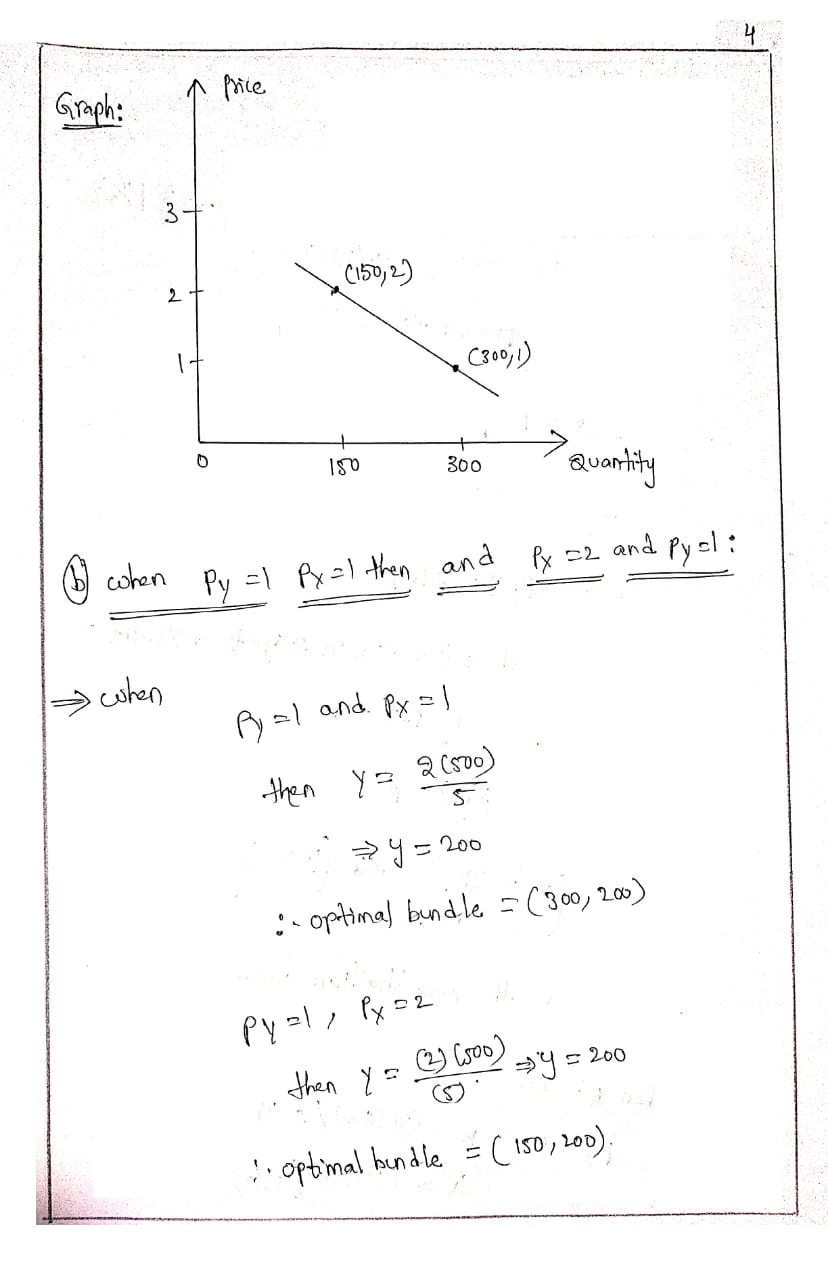 4
Graph:
Price
3
(150,2)
2
(300,1)
1
0 150 300 Quantity
(b) when Py =1 Px=1 then and Px =2 and Py=1 :
⇒ when
Py =1 and Px =1
then Y = 2(500)/5
⇒ y = 200
∴ optimal bundle = (300, 200)
PY =1 , Px =2
then Y = (2)(500)/(5) ⇒ y = 200
∴ optimal bundle = (150, 200).